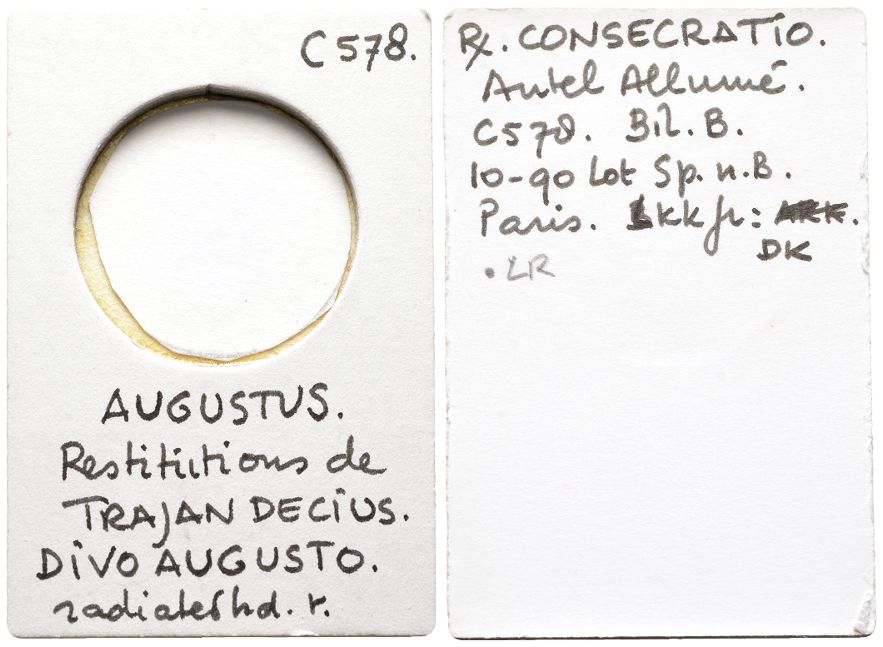 C578.
AUGUSTUS.
Restitutions de
TRAJAN DECIUS.
DIVO AUGUSTO.
radiated hd. r.
Rx. CONSECRATIO.
Autel Allumé.
C578. Bil. B.
10-90 Lot Sp. n. B.
Paris. kk fr:
DK
. LR